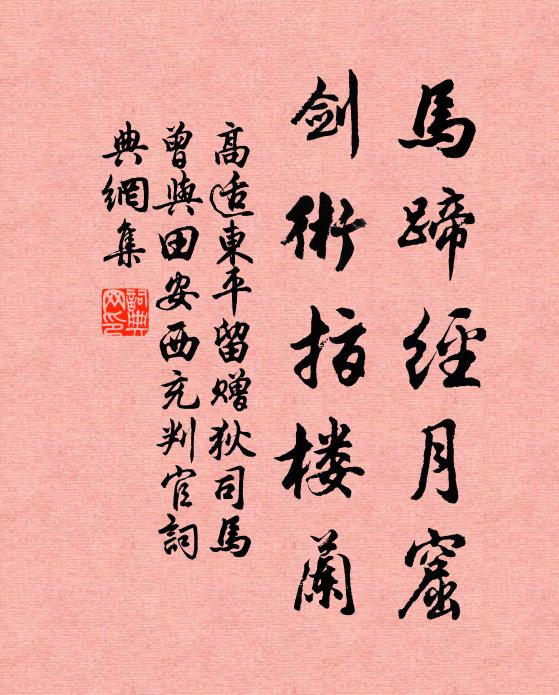 馬蹄經月窟
劍術指楼蘭
高適東平留贈狄司馬
曾與田安西充判官詞
典網集
詞典
网印